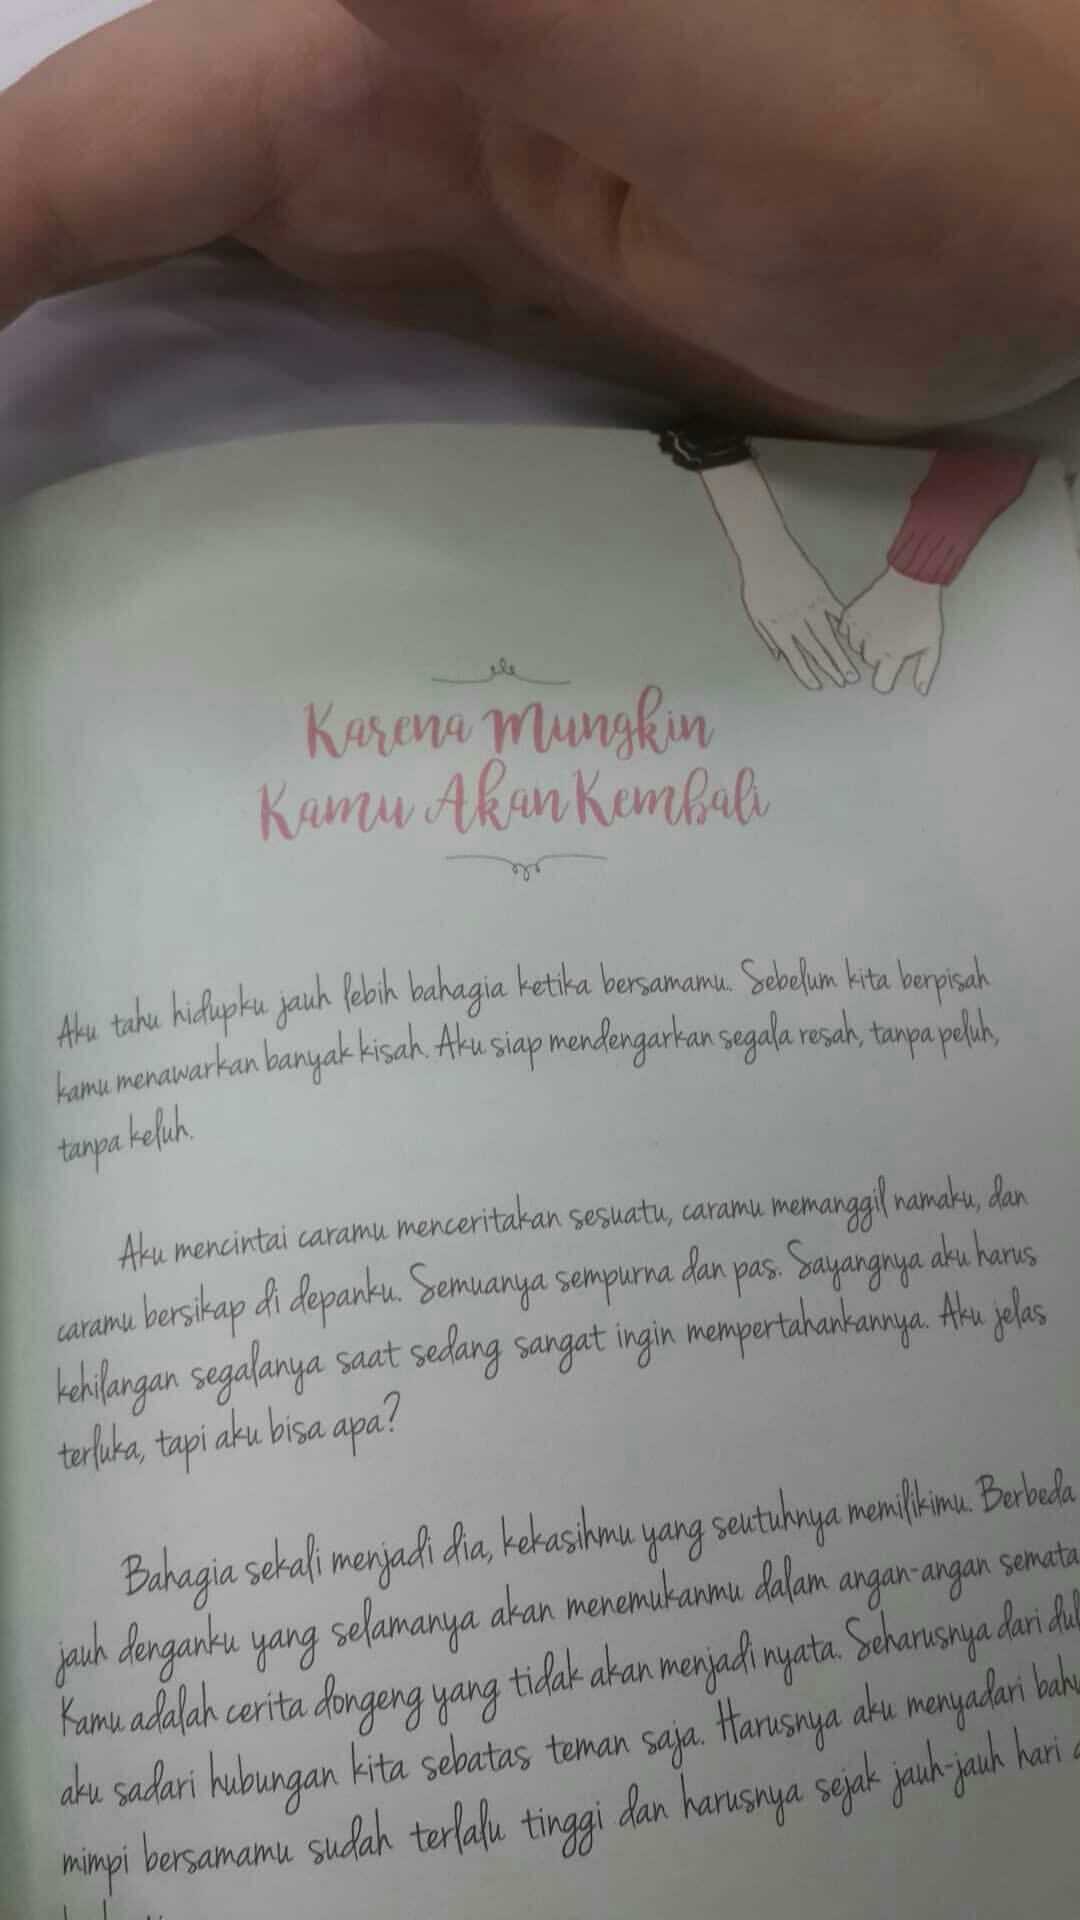 Karena Mungkin
Kamu Akan Kembali
Aku tahu hidupku jauh lebih bahagia ketika bersamamu. Sebelum kita berpisah
kamu menawarkan banyak kisah. Aku siap mendengarkan segala resah, tanpa peluh,
tanpa keluh.
Aku mencintai caramu menceritakan sesuatu, caramu memanggil namaku, dan
caramu bersikap di depanku. Semuanya sempurna dan pas. Sayangnya aku harus
kehilangan segalanya saat sedang sangat ingin mempertahankannya. Aku jelas
terluka, tapi aku bisa apa?
Bahagia sekali menjadi dia, kekasihmu yang seutuhnya memilikimu. Berbeda
jauh denganku yang selamanya akan menemukanmu dalam angan-angan semata
Kamu adalah cerita dongeng yang tidak akan menjadi nyata. Seharusnya dari
aku sadari hubungan kita sebatas teman saja. Harusnya aku menyadari
mimpi bersamamu sudah terlalu tinggi dan harusnya sejak jauh-jauh hari